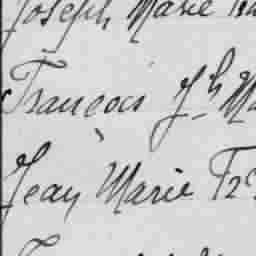 Joseph Marie
François Jh
Jean Marie Fz